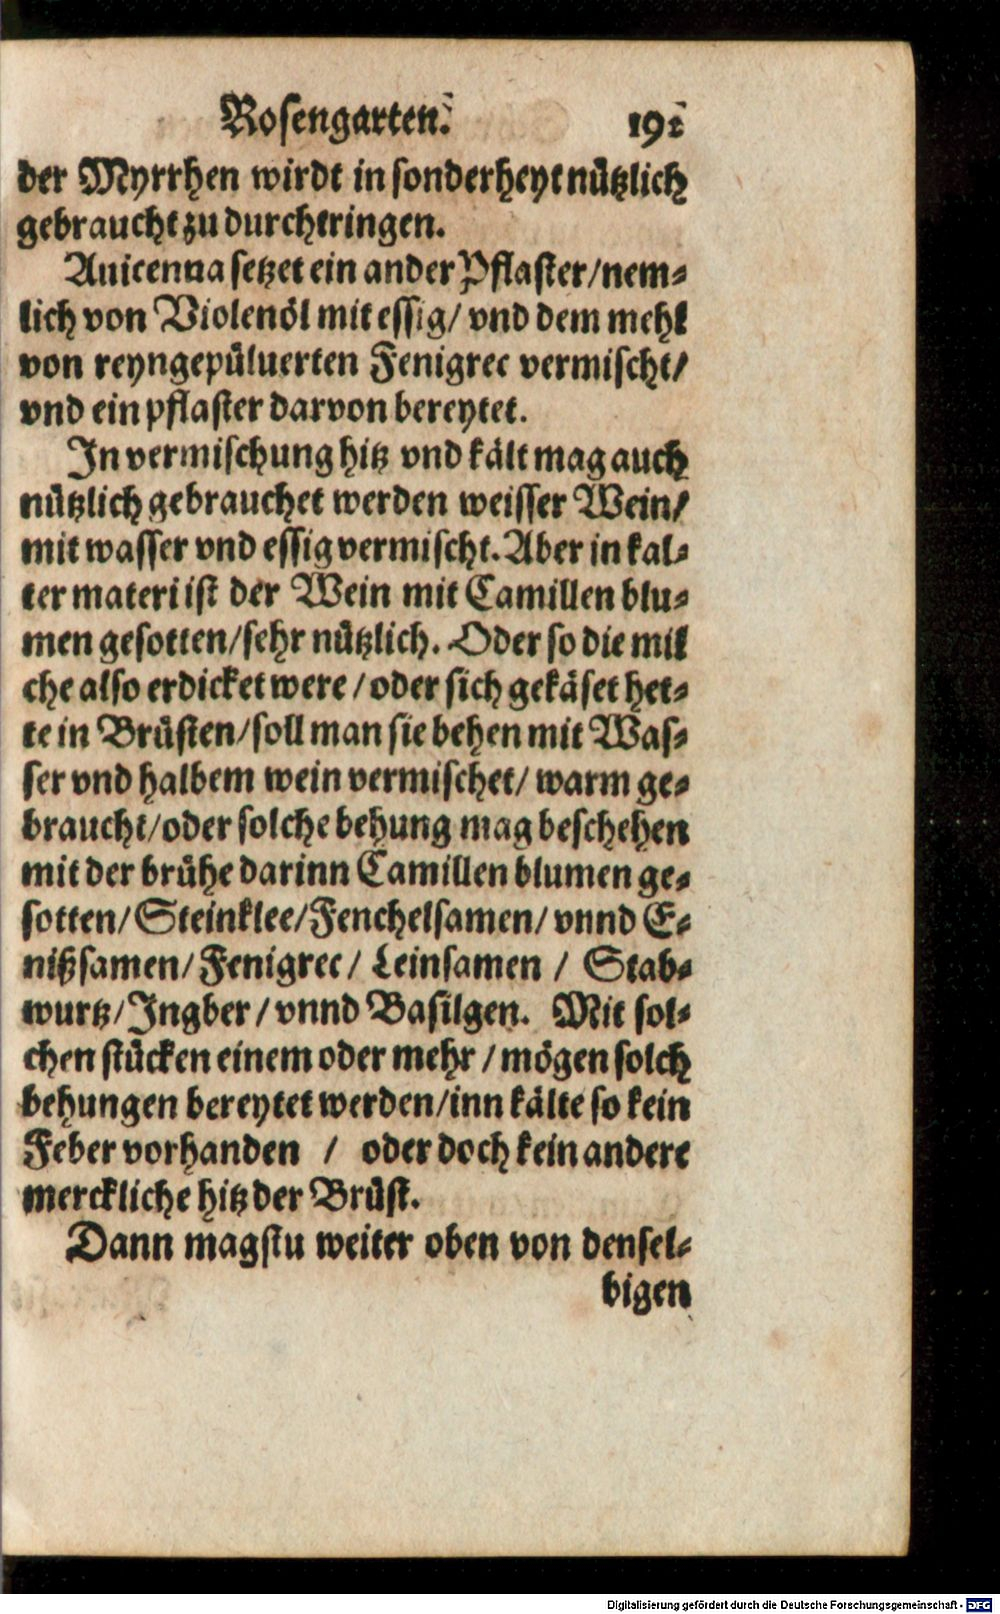 Rosengarten. 191
der Myrrhen wirdt in sonderheyt nützlich
gebraucht zu durchtringen.
Auicenna setzet ein ander Pflaster/ nem-
lich von Violenöl mit essig/ vnd dem mehl
von reyngepüluerten Fenigrec vermischt/
vnd ein pflaster darvon bereytet.
In vermischung hitz vnd kält mag auch
nützlich gebrauchet werden weisser Wein/
mit wasser vnd essig vermischt. Aber in kal-
ter materi ist der Wein mit Camillen blu-
men gesotten/ sehr nützlich. Oder so die mil
che also erdicket were / oder sich gekäset het-
te in Brüsten/ soll man sie behen mit Was-
ser vnd halbem wein vermischet/ warm ge-
braucht/ oder solche behung mag beschehen
mit der brühe darinn Camillen blumen ge-
sotten/ Steinklee/ Fenchelsamen/ vnnd E-
nißsamen/ Fenigrec/ Leinsamen / Stab-
wurtz/ Ingber / vnnd Basilgen. Mit sol-
chen stücken einem oder mehr / mögen solch
behungen bereytet werden/ inn kälte so kein
Feber vorhanden / oder doch kein andere
merckliche hitz der Brüst.
Dann magstu weiter oben von densel-
bigen
Digitalisierung gefördert durch die Deutsche Forschungsgemeinschaft - DFG